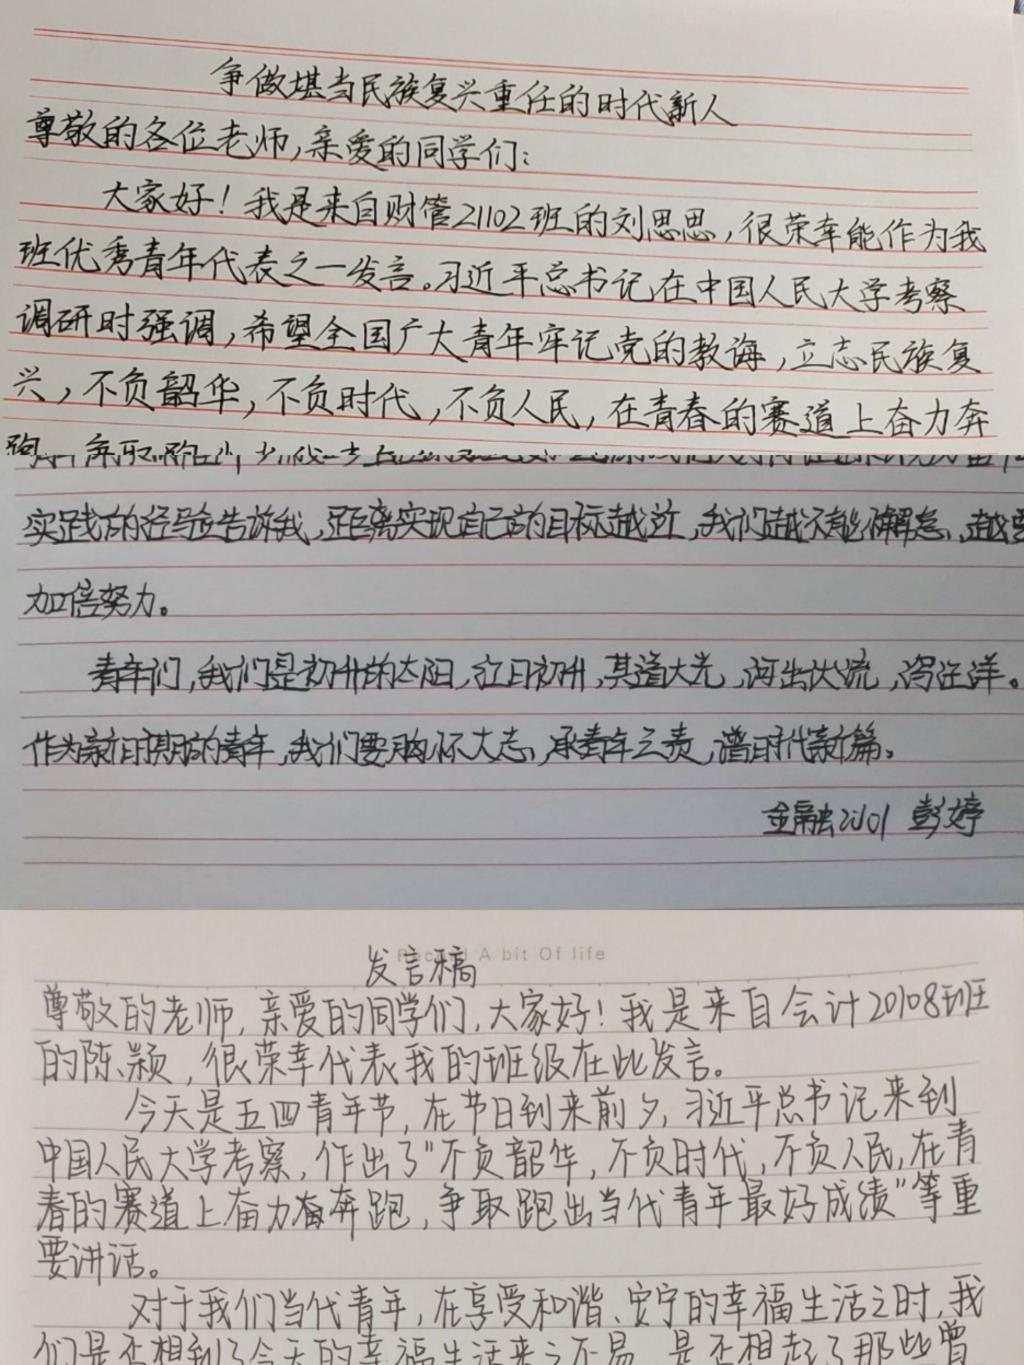 争做堪当民族复兴重任的时代新人
尊敬的各位老师,亲爱的同学们:
大家好!我是来自财管21102班的刘思思,很荣幸能作为我
班优秀青年代表之一发言。习近平总书记在中国人民大学考察
调研时强调,希望全国广大青年牢记党的教诲,立志民族复
兴,不负韶华,不负时代,不负人民,在青春的赛道上奋力奔
跑,争取跑出当代
实践的经验告诉我,距离实现自己的目标越近,我们越不能懈怠,越要
加倍努力。
青年们,我们是初升的太阳,红日初升,其道大光,河出伏流,泻汪洋。
作为新时期的青年,我们要胸怀大志,承青年之责,谱时代新篇。
金融2101 彭婷
Record A bit Of life
发言稿
尊敬的老师,亲爱的同学们,大家好!我是来自会计20108班
的陈颖,很荣幸代表我的班级在此发言。
今天是五四青年节,在节日到来前夕,习近平总书记来到
中国人民大学考察,作出了"不负韶华,不负时代,不负人民,在青
春的赛道上奋力奋奔跑,争取跑出当代青年最好成绩"等重
要讲话。
对于我们当代青年,在享受和谐、安宁的幸福生活之时,我
们是否想到了今天的幸福生活来之不易,是否想起了那些曾